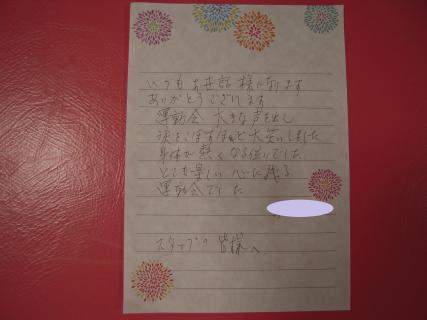 いつもお世話様になります
ありがとうございます
運動会 大きな声を出し
涙をこぼすほど大笑いしました
身体が熱くなる位いでした
とても楽しい心に残る
運動会でした
スタッフの皆様へ